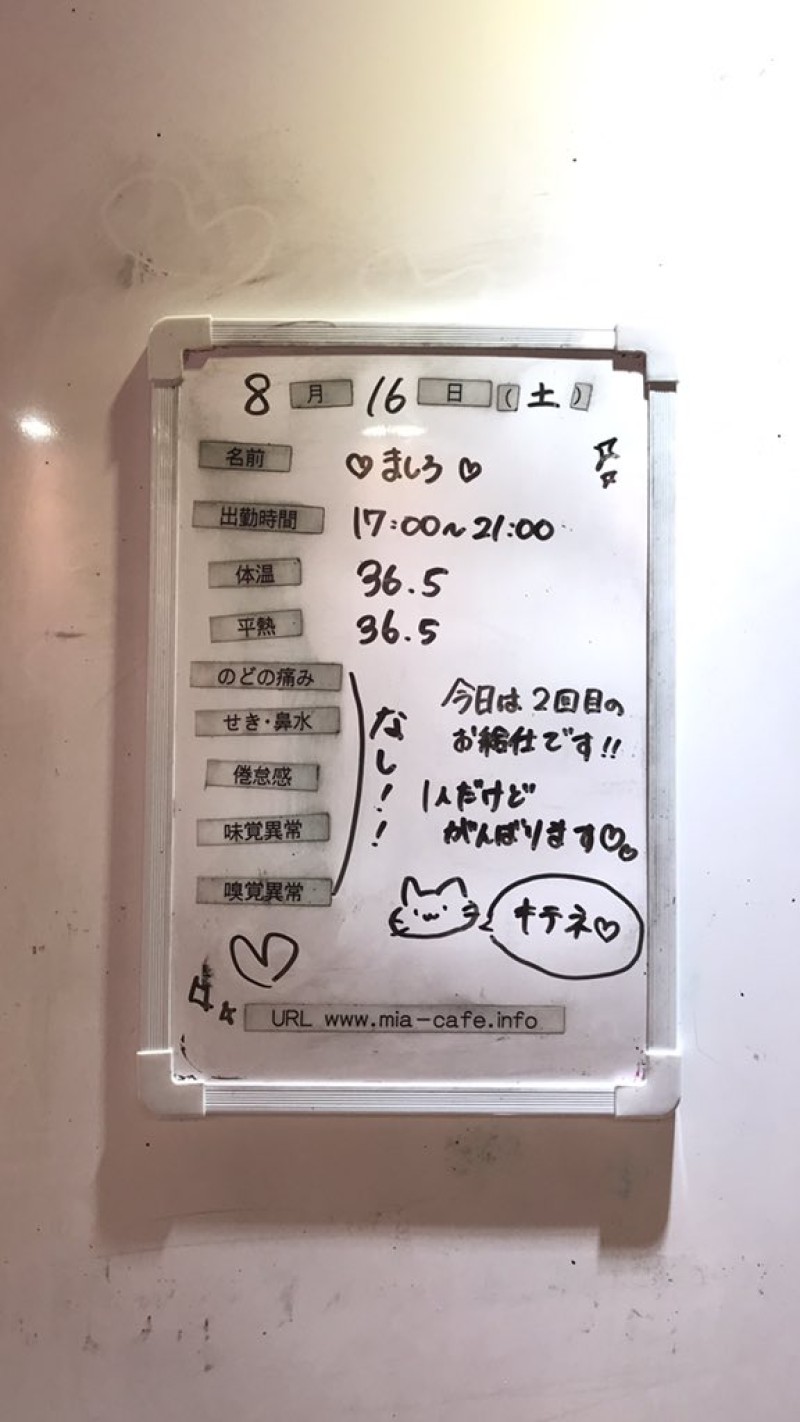 8月16日(土)
名前 ♡ましろ♡
出勤時間 17:00~21:00
体温 36.5
平熱 36.5
のどの痛み
せき・鼻水
倦怠感
味覚異常
嗅覚異常
なし!!
今日は2回目の
お給仕です!!
1人だけど
がんばります♡♡
キテネ♡
URL www.mia-cafe.info